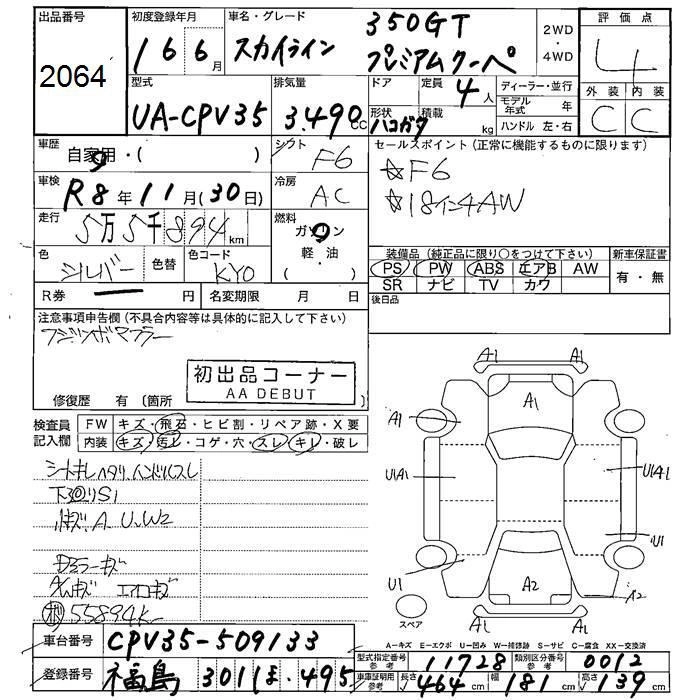 出品番号 2064
初度登録年月 16 6月
車名・グレード スカイライン 350GT プレミアムクーペ
2WD・4WD
評価点 4
外装 C 内装 C
型式 UA-CPV35
排気量 3,490CC
ドア
形状 ハコガタ
定員 4人
積載 kg
ディーラー・並行
モデル年式 年
ハンドル 左・右
車歴 自家用・( )
シフト F6
車検 R8年11月(30日)
冷房 AC
走行 5万5千894km
燃料 ガソリン 軽・油 ( )
色 シルバー 色替
色コード KY0
R券 円
名変期限 月 日
セールスポイント(正常に機能するものに限ります)
☆F6
☆18インチAW
装備品(純正品に限り○をつけて下さい)
PS PW ABS エアB AW
SR ナビ TV カワ
新車保証書
有・無
後日品
注意事項申告欄(不具合内容等は具体的に記入して下さい)
フジツボマフラー
初出品コーナー
AA DEBUT
修復歴 有〔箇所
検査員記入欄
FW キズ・飛石・ヒビ割・リペア跡・X要
内装 キズ・汚レ・コゲ・穴・スレ・キレ・破レ
シートキレヘタリ、ハンドルスレ
A、U、W2
D3ラーキズ
AWキズ エアロキズ
55894K
A1 A1
A1
A1
U1A1 U1A1
U1
U1
A2
A2
A1 A1
スペア
A-キズ E-エクボ U-凹み W-補修跡 S-サビ C-腐食 XX-交換済
車台番号 CPV35-509133
登録番号 福島 301 ほ 495
型式指定番号 参考 11728
類別区分番号 参考 0012
車庫証明用 参考 長さ 464cm 幅 181cm 高さ 139cm